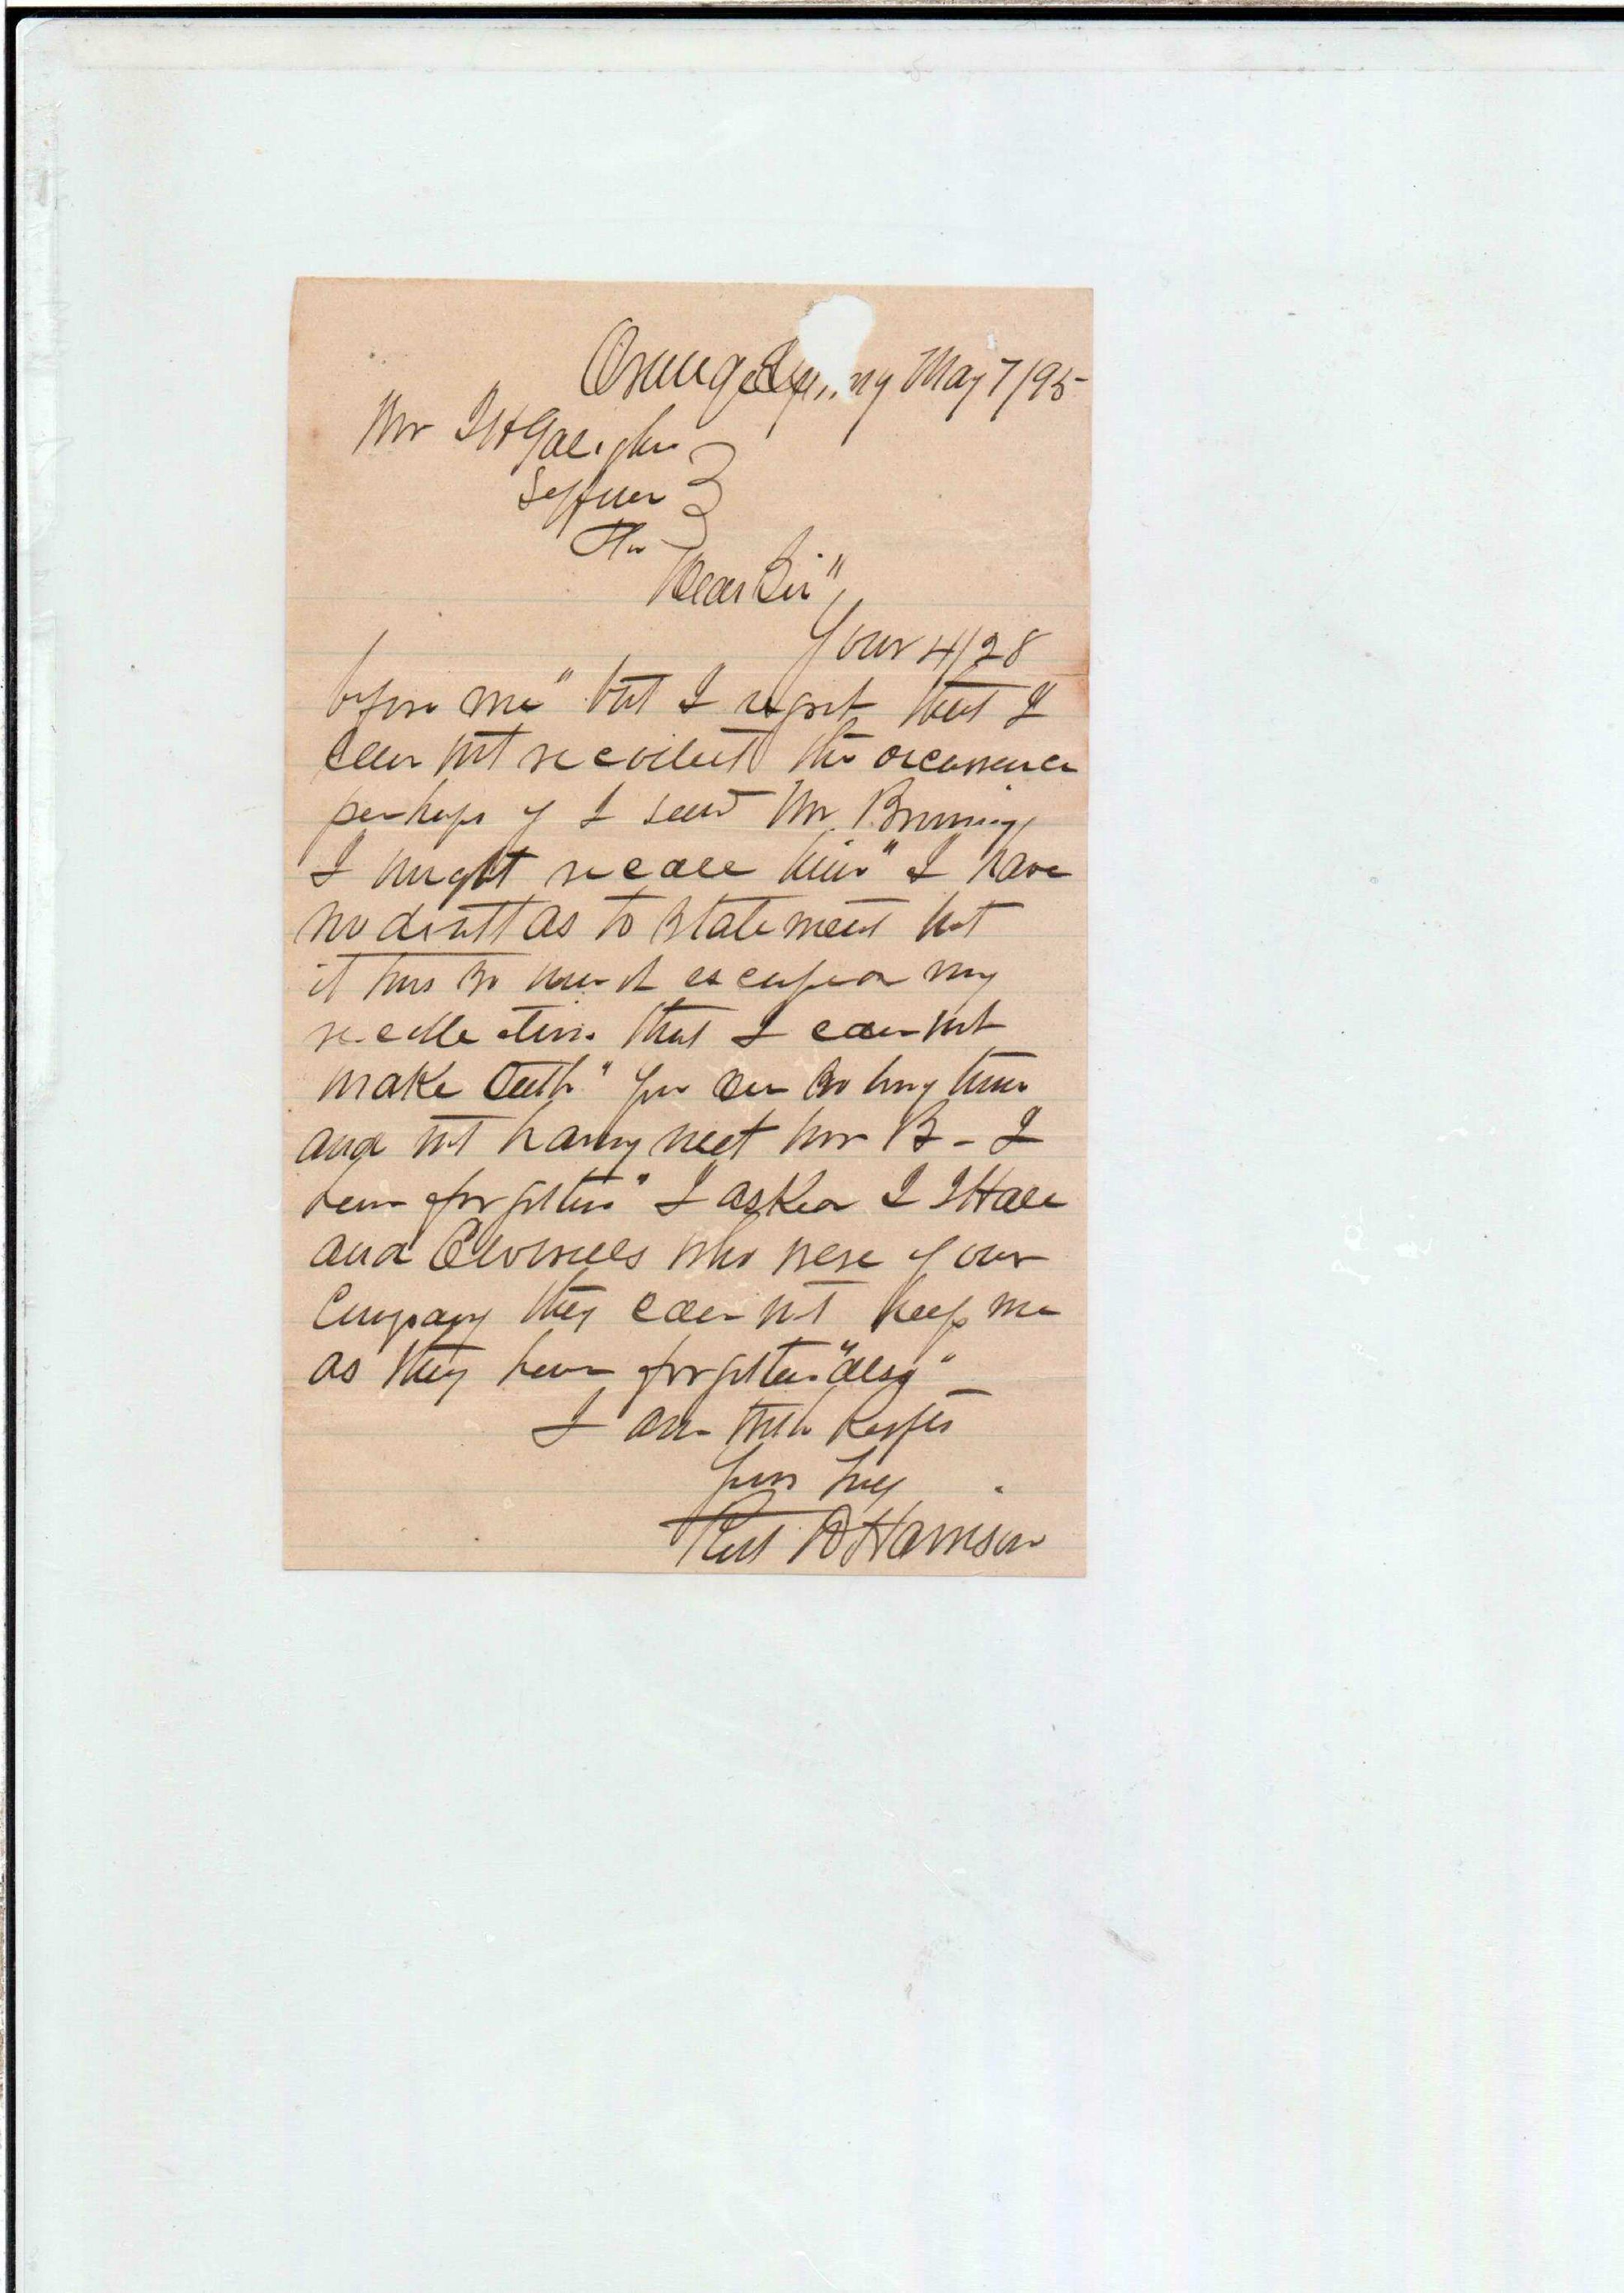 Orange Spring May 7/95
Mr J H
Seffner
Fla
"Dear Sir"
Your 4/28
before me" but I regret that I
can not recollect the occurrence
perhaps if I seen Mr. Bruning
I might recall him" I have
no doubt as to statement but
it has so much escaped my
recollection that I can not
make Oath" for in so long time
and not having met Mr B - I
have forgotten" I asked J J Hall
and who were of our
Company they can not help me
as they have forgotten "also"
I am with Respts
Yours Truly
Robt D Harrison